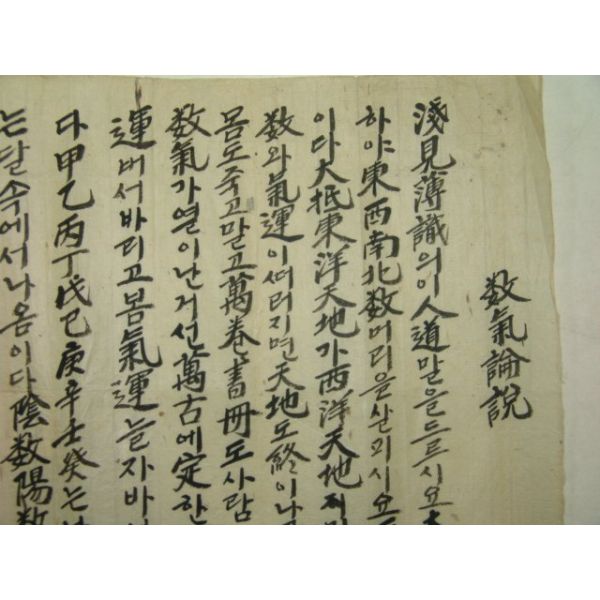 数氣論說
淺見薄識의이人道말을드르시요
하야東西南北数머리을살피시요
이다大抵東洋天地가西洋天地
数와氣運이써러지면天地도終이나
몸도죽고말고萬卷書冊도사람
数氣가열이난거선萬古에定한
運버서바리고봄氣運늘자바
다甲乙丙丁戊己庚辛壬癸는
는달속에서나옴이다陰数陽数